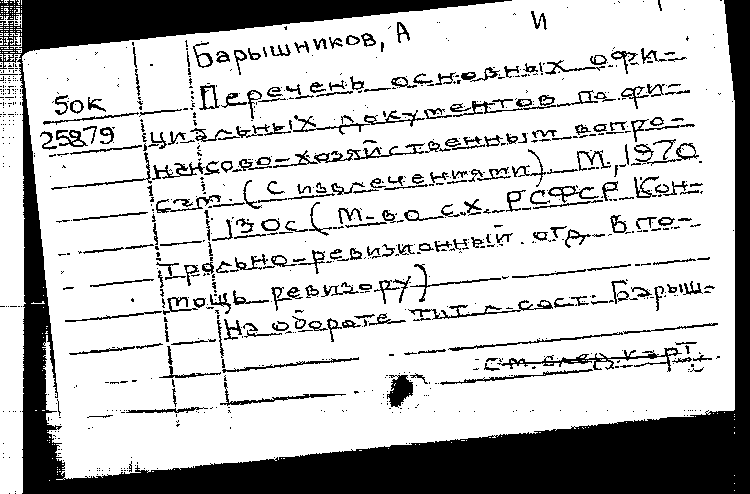 Барышников, А И
50к Перечень основных офи-
25879 циальных документов по фи-
нансово-хозяйственным вопро-
сам. (с извлечениями). М., 1970
130с (М-во с.х. РСФСР Кон-
трольно-ревизионный отд. В по-
мощь ревизору)
На обороте тит л сост: Барыш-
см. след. карт.